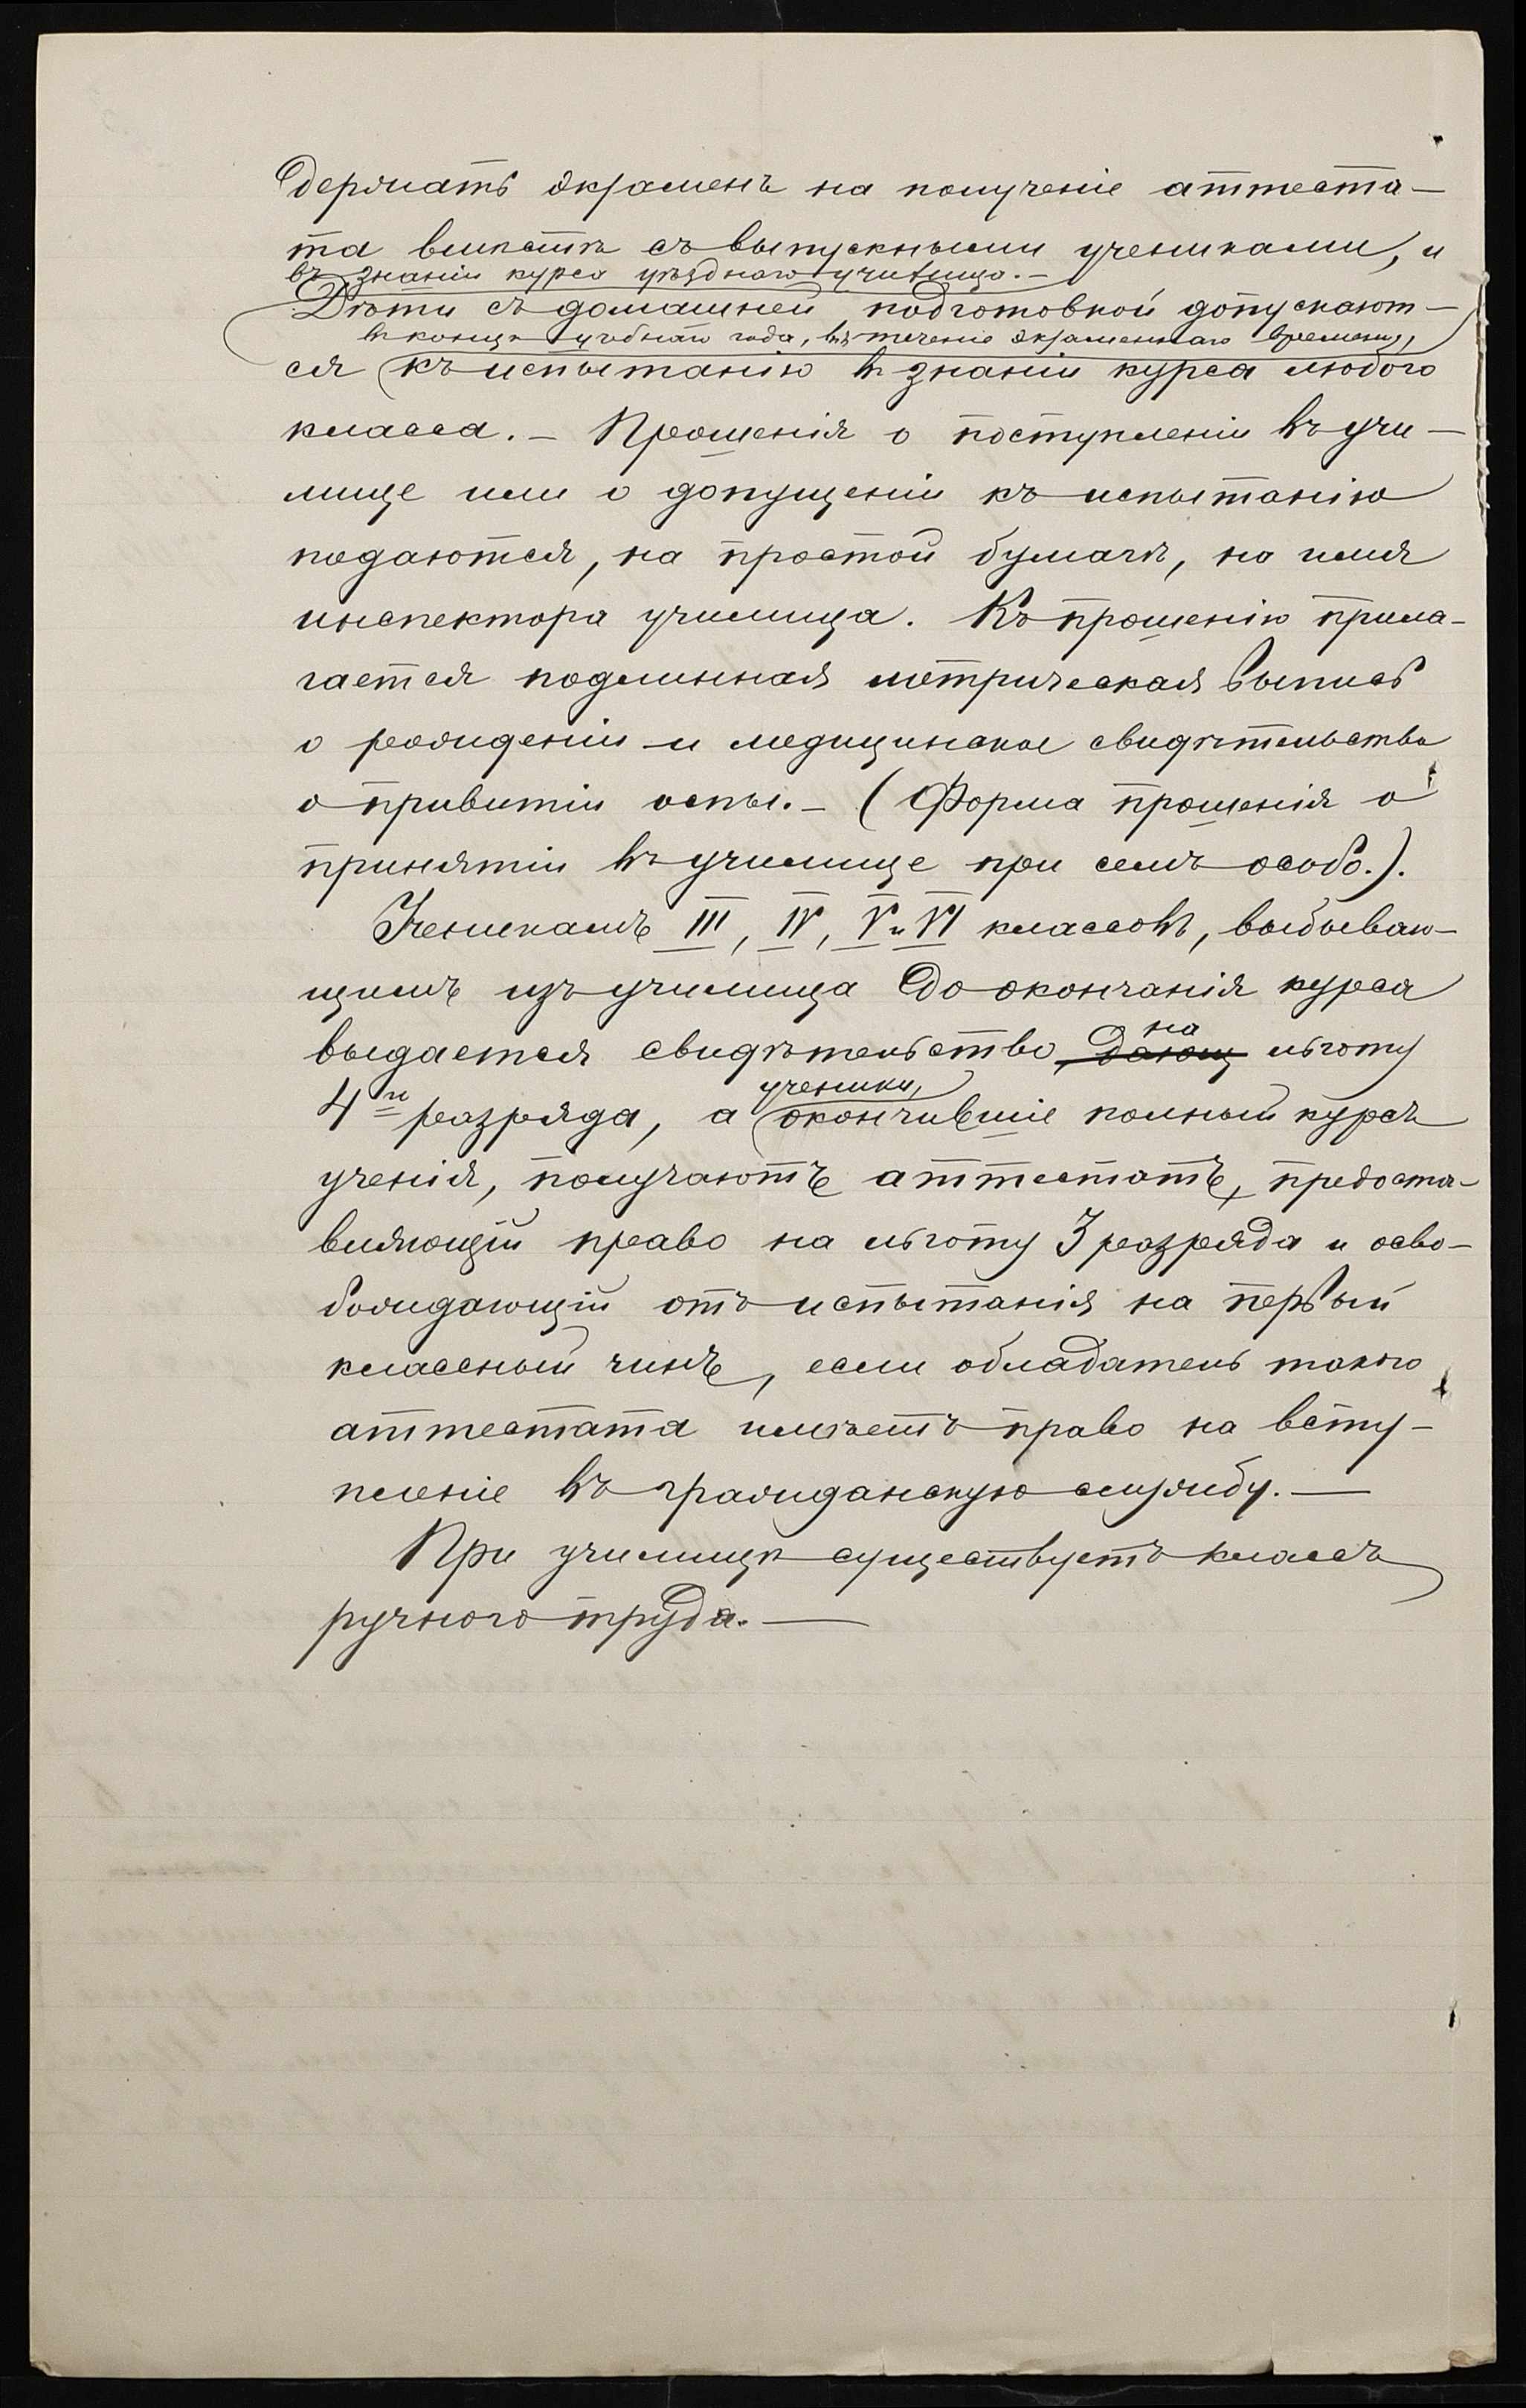 держать экзаменъ на полученіе аттеста-
та вмѣстѣ съ выпускными учениками, и
въ знаніи курса уѣзднаго училища.-
Дѣти съ домашней подготовкой допускают-
въ концѣ учебнаго года, въ теченіе экзаменнаго времени,
ся къ испытанію въ знаніи курса любого
класса.- Прошенія о поступленіи въ учи-
лище или о допущеніи къ испытанію
подаются, на простой бумагѣ, на имя
инспектора училища. Къ прошенію прила-
гается подлинная метрическая выпись
о рожденіи и медицинское свидѣтельство
о привитіи оспы.- (Форма прошенія о
принятіи въ училище при семъ особо.).
Ученикамъ III, IV, V и VI классовъ, выбываю-
щимъ изъ училища до окончанія курса
на
выдается свидѣтельство дающ льготу
ученики,
4го разряда, а окончившіе полный курсъ
ученія, получаютъ аттестатъ, предоста-
вляющій право на льготу 3 разряда и осво-
бождающій отъ испытанія на первый
классный чинъ, если обладатель такого
аттестата имѣетъ право на всту-
пленіе въ гражданскую службу.-
При училищѣ существуетъ классъ
ручного труда.-